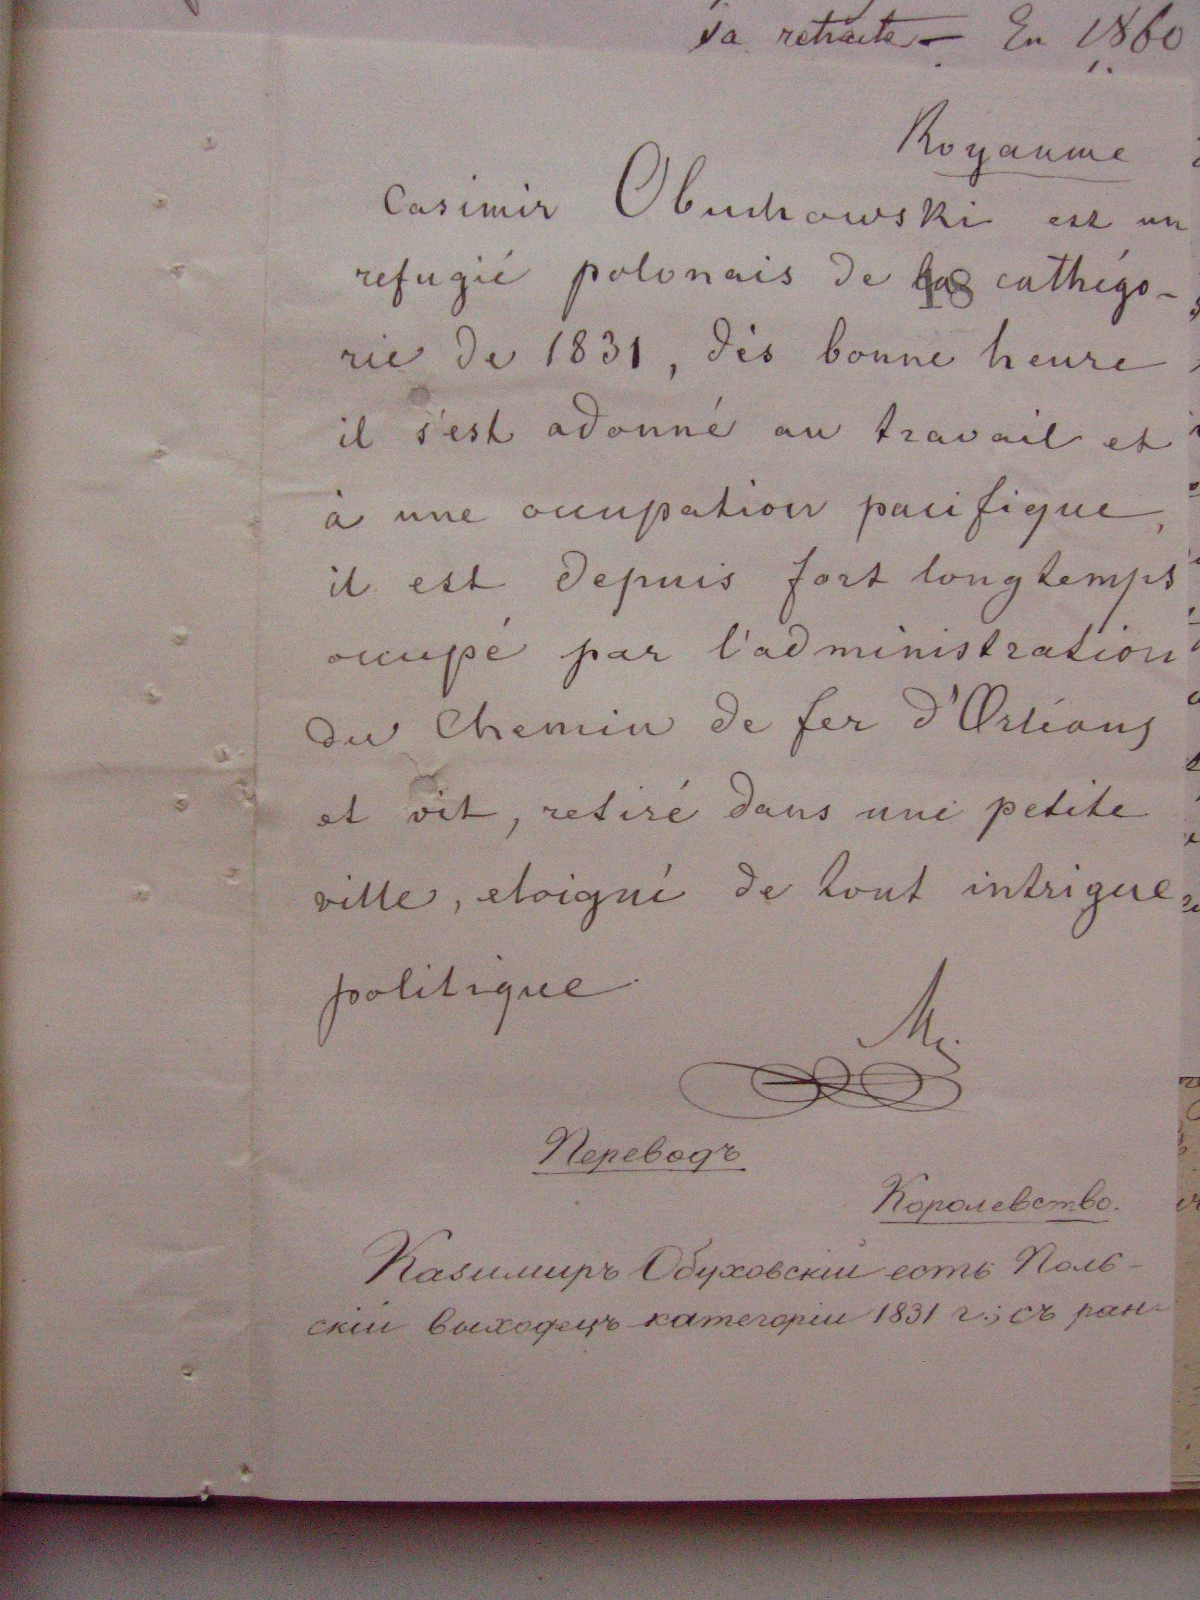 sa retraite — En 1860
Royaume
Casimir Obuchowski est un
refugié polonais de la cathégo-
rie de 1831, dès bonne heure
il s'est adonné au travail et
à une occupation pacifique,
il est depuis fort longtemps
occupé par l'administration
du Chemin de fer d'Orléans
et vit, retiré dans une petite
ville, eloigné de tout intrigue
politique.
Переводъ
Королевство.
Казимиръ Обуховскій есть Поль-
скій выходецъ категоріи 1831 г.; съ ран-